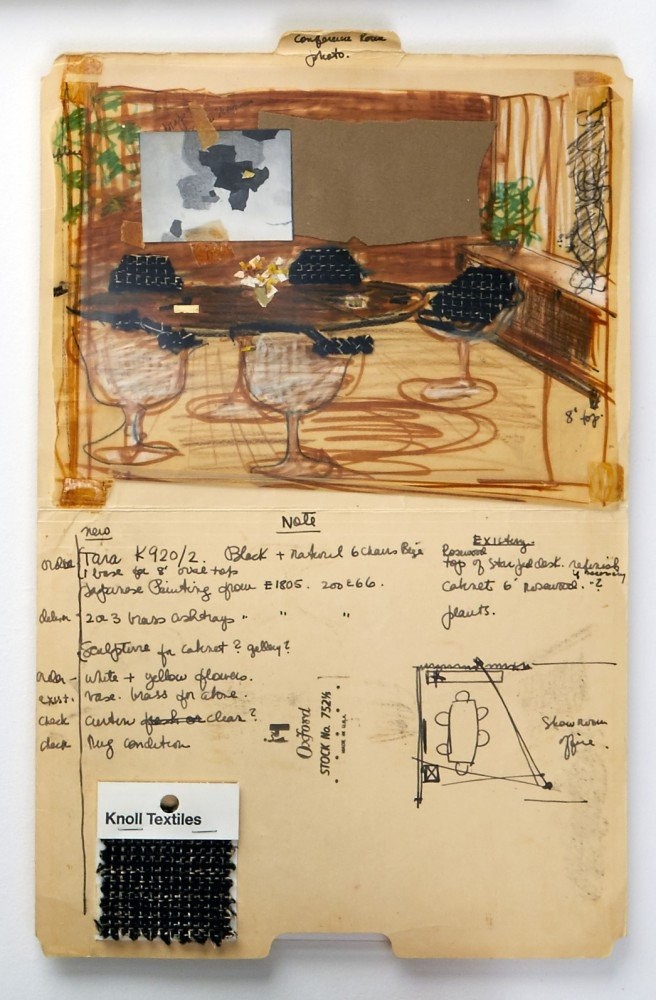 Conference Room
photo.
8' top.
Note
new
Existing.
order
Tara K920/2. Black + natural 6 chairs Beige
Rosewood
1 base for 8' oval top
top of Star jed desk. refinish
if necessary
Japanese Painting from E1805. 200 E 66.
Cabinet 6' Rosewood. - ?
2 or 3 brass ashtrays " " "
plants.
Sculpture for cabinet? gallery?
order - white + yellow flowers.
exist. vase. brass for above.
check curtain fresh or clean?
check Rug condition
Oxford
STOCK No. 752⅓
MADE IN U.S.A.
Showroom
office.
Knoll Textiles